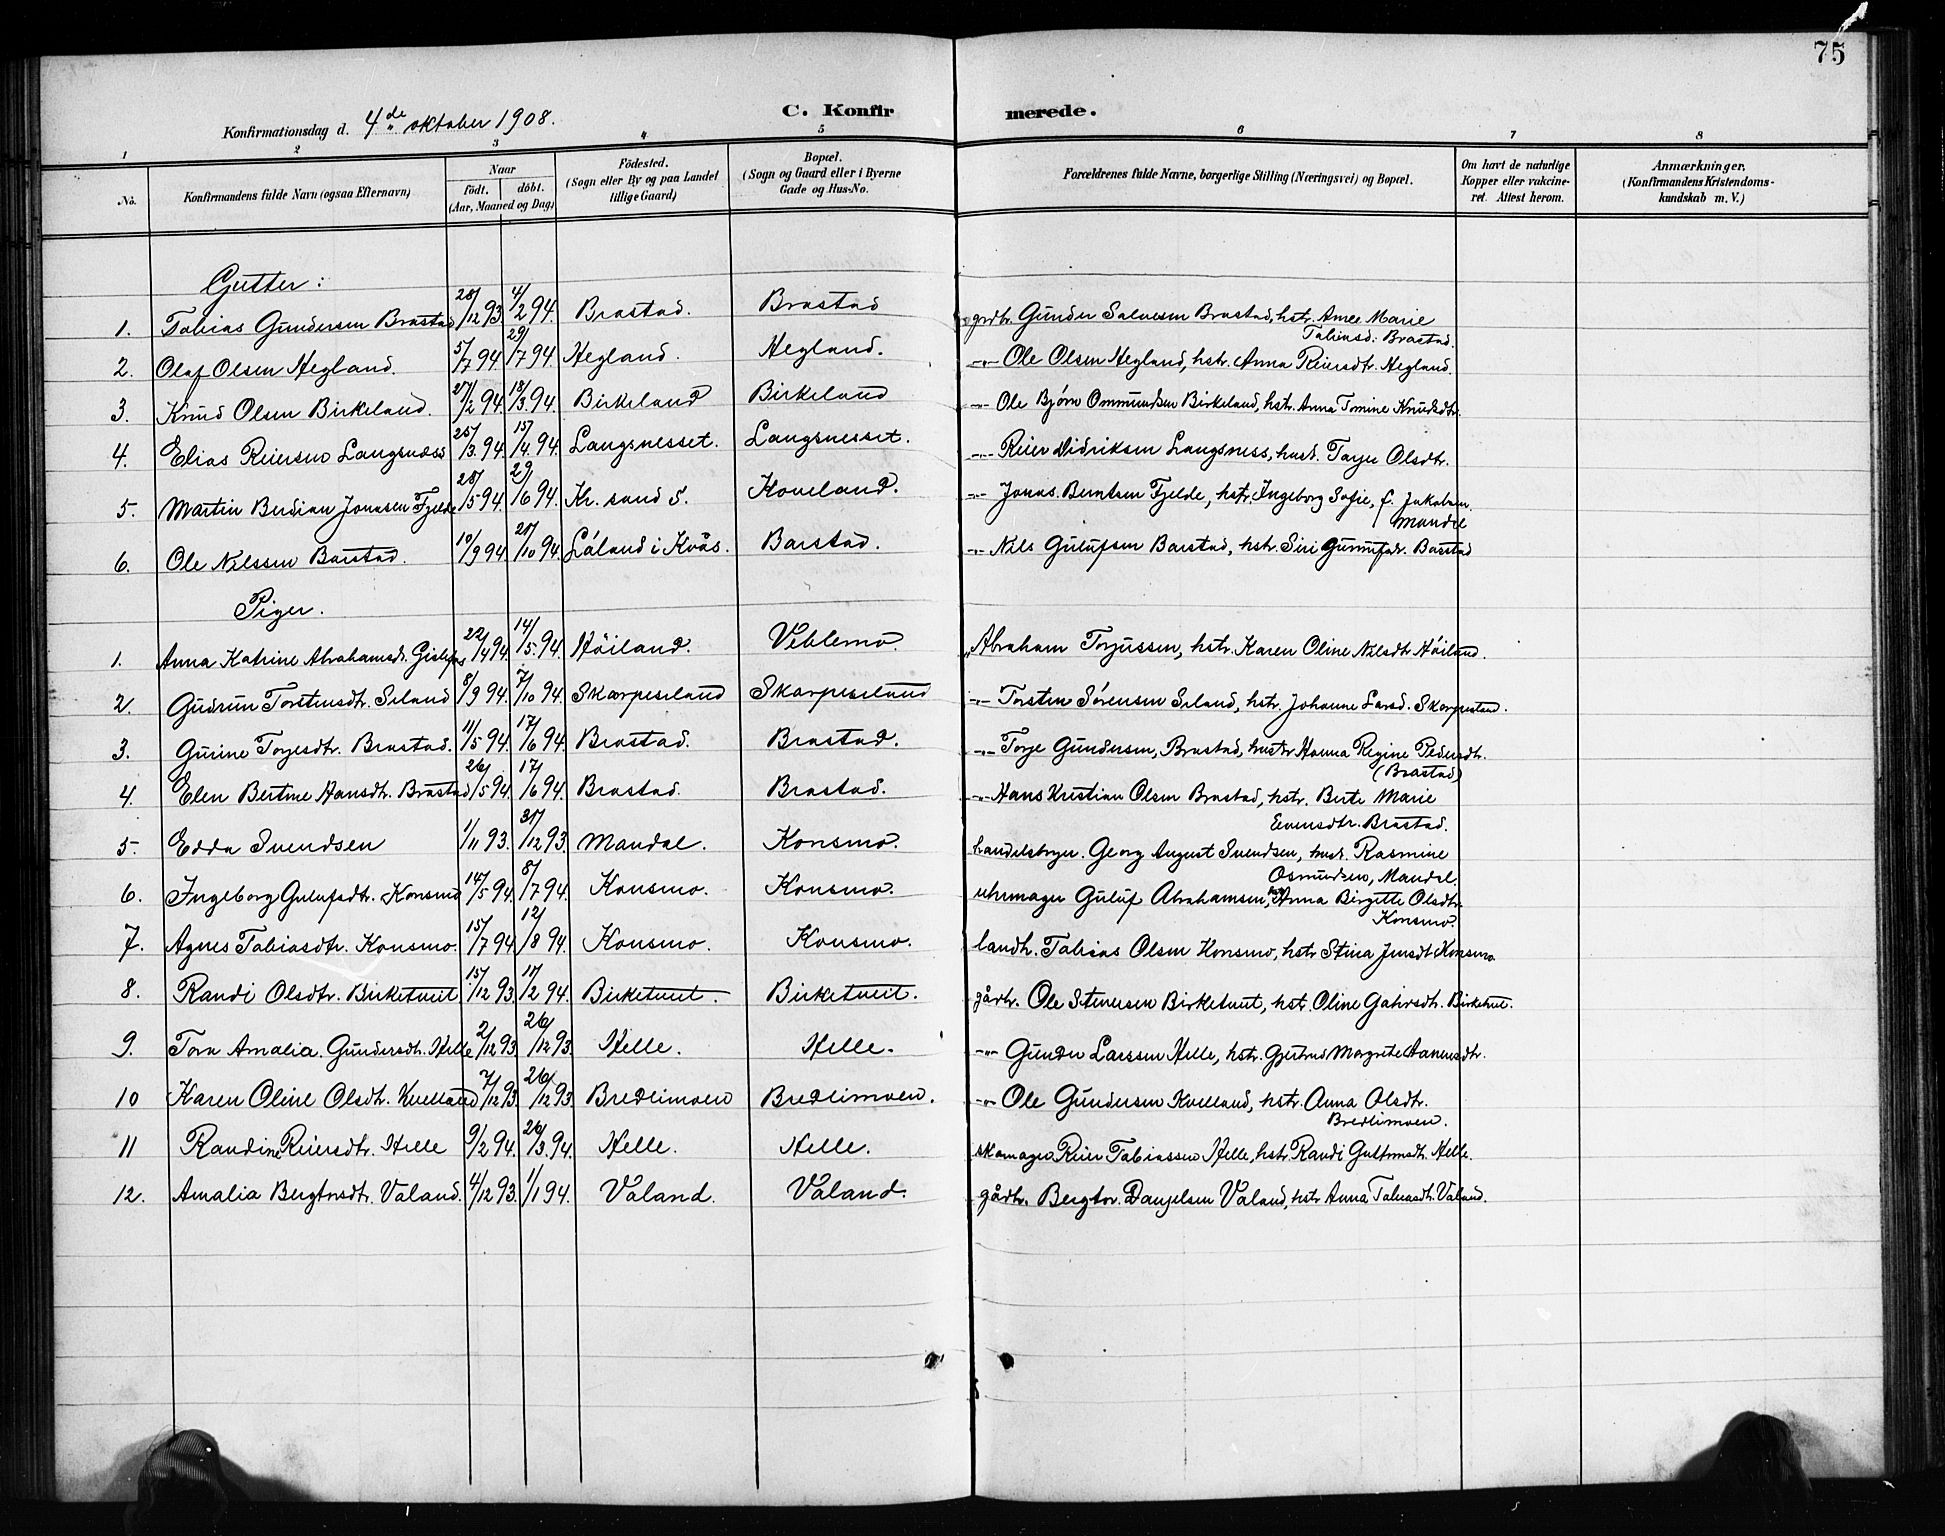 75
C. Konfirmerede.
Konfirmationsdag d. 4de oktober 1908.
1 2 3 4 5 6 7 8
No. Konfirmandens fulde Navn (ogsaa Efternavn) Naar født. døbt. (Aar, Maaned og Dag) Födested. (Sogn eller By og paa Landet tillige Gaard) Bopæl. (Sogn og Gaard eller i Byerne Gade og Hus-No. Forældrenes fulde Navne, borgerlige Stilling (Næringsvei) og Bopæl. Om havt de naturlige Kopper eller vakcineret. Attest herom. Anmærkninger, (Konfirmandens Kristendomskundskab m. V.)
Gutter:
1. Tobias Gundersen Brastad 28/12 93 4/2 94. Brastad. Brastad grdbr. Gunder Salvesen Brastad, hstr. Amee Marie
Tobiasd. Brastad.
2. Olaf Olsen Hegland. 5/7 94 29/7 94. Hegland. Hegland. -"- Ole Olsen Hegland, hstr. Anna Reiersdtr. Hegland.
3. Knud Olsen Birkeland. 27/2 94. 18/3 94. Birkeland Birkeland -"- Ole Bjørn Ommundsen Birkeland, hstr. Anna Tomine Knudsdtr.
4. Elias Reiersen Langsnæss 25/3 94. 15/4 94. Langsnesset. Langsnesset. -"- Reier Didriksen Langsness, hust. Tarjer Olsdtr.
5. Martin Berdian Jonassen Fjelde 28/5 94. 29/6 94. Kr. sand S. Koveland. -"- Jonas Berntsen Fjelde, hstr. Ingeborg Sofie, f. Jakobsen.
Mandal
6. Ole Nilssen Barstad. 10/9 94. 21/10 94. Låland i Kvås. Barstad. -"- Nils Gulufsen Barstad, hstr. Siri Gunufsdr. Barstad
Piger.
1. Anna Katrine Abrahamsdr. Gislefos 22/4 94. 14/5 94. Høiland. Veblemo. -"- Abraham Torjussen, hstr. Karen Oline Nilsdtr Høiland.
2. Gudrun Torstensdtr. Seland 8/9 94. 7/10 94. Skarpeseland Skarpeseland -"- Torsten Sørensen Seland, hstr. Johanne Larsd. Skarpesland.
3. Gurine Torjesdtr. Brastad. 11/5 94. 17/6 94. Brastad. Brastad. -"- Torje Gundersen, Brastad, hustr Hanna Regine Pedersdtr.
(Brastad)
4. Elen Bertine Hansdtr. Brastad 26/5 94. 17/6 94. Brastad. Brastad. -"- Hans Kristian Olsen Brastad, hstr. Berte Marie
Evensdtr. Brastad.
5. Edda Svendsen 1/11 93. 31/12 93. Mandal. Konsmo. handelsbryer. Georg August Svendsen, hust. Rasmine
Osmundsen, Mandal.
6. Ingeborg Gulufsdtr. Konsmo 14/5 94. 8/7 94. Konsmo. Konsmo. uhrmager Guluf Abrahamsen, Anna Birgitte Olsdtr.
Konsmo.
7. Agnes Tobiasdtr. Konsmo. 15/7 94 12/8 94. Konsmo. Konsmo. landh. Tobias Olsen Konsmo, hstr Stina Jensdt Konsmo
8. Randi Olsdtr. Birketveit 15/12 93. 11/2 94. Birketveit. Birketveit. gårbr. Ole Stenersen Birketveit, hst. Oline Gahrsdtr. Birketveit.
9. Tora Amalia Gundersdtr. Helle 2/12 93. 26/12 93. Helle. Helle. -"- Gunder Larssen Helle, hstr. Gjertrud Margrete Aanensdtr.
10 Karen Oline Olsdtr. Kvelland 7/12 93. 26/12 93. Bredlimoen Bredlimoen. -"- Ole Gundersen Kvelland, hstr. Anna Olsdtr.
Bredlimoen.
11 Randine Reiersdtr. Helle 9/2 94. 26/3 94. Helle. Helle. skomager Reier Tobiassen Helle, hstr. Randi Guttormsdtr. Helle.
12. Amalia Bergtorsdtr. Valand. 4/12 93. 1/1 94. Valand. Valand. gårbr. Bergtor. Danjelsen Valand, hstr Anna Tobiasdtr. Valand.